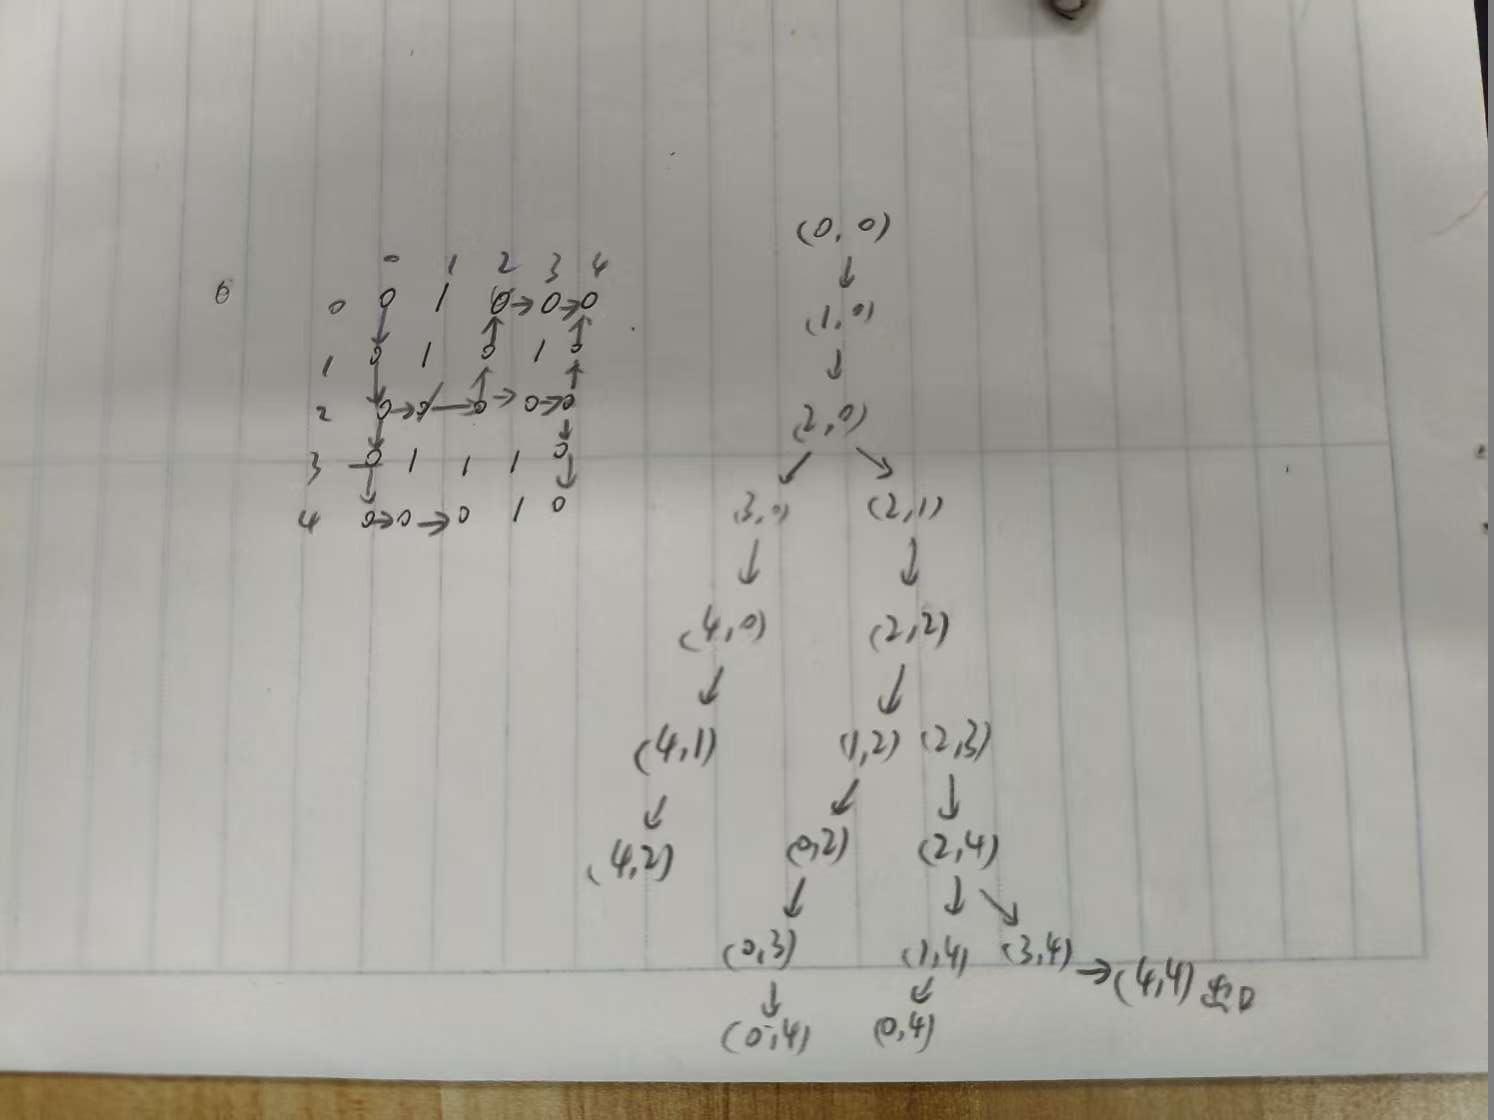 0 1 2 3 4
6
0 0 1 0→0→0
1 0 1 0 1 0
2 0→0→0→0→0
3 0 1 1 1 0
4 0→0→0 1 0
(0,0)
(1,0)
(2,0)
(3,0) (2,1)
(4,0) (2,2)
(4,1) (1,2) (2,3)
(4,2) (0,2) (2,4)
(0,3) (1,4) (3,4) →(4,4) 出口
(0,4) (0,4)